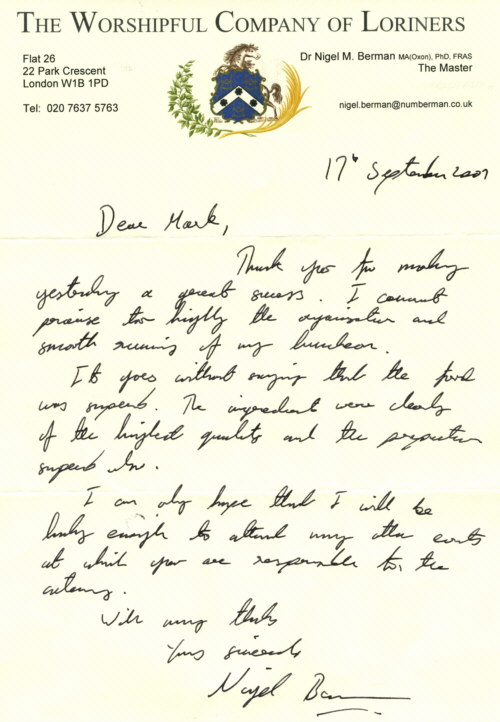 THE WORSHIPFUL COMPANY OF LORINERS
Flat 26
22 Park Crescent
London W1B 1PD
Tel: 020 7637 5763
Dr Nigel M. Berman MA(Oxon), PhD, FRAS
The Master
nigel.berman@numberman.co.uk
17th September 2007
Dear Mark,
Thank you for making
yesterday a great success. I cannot
praise too highly the organisation and
smooth running of my luncheon.
It goes without saying that the food
was superb. The ingredients were clearly
of the highest quality and the preparation
superb also.
I can only hope that I will be
lucky enough to attend many other events
at which you are responsible for the
catering.
With many thanks
Yours sincerely
Nigel Berman